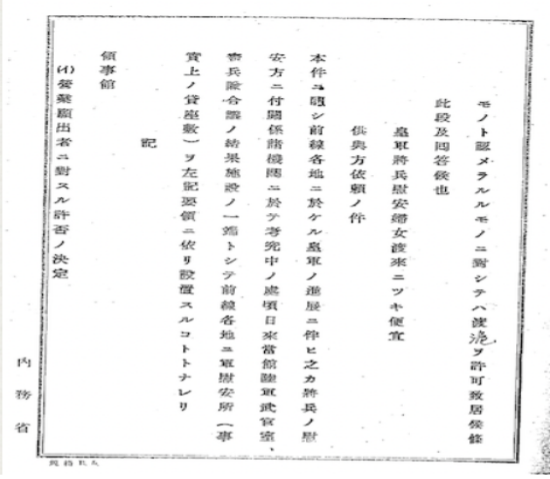 モノト認メラルルモノニ對シテハ渡滬ヲ許可致居候條
此段及回答候也
皇軍將兵慰安婦女渡來ニツキ便宜
供與方依頼ノ件
本件ニ關シ前線各地ニ於ケル皇軍ノ進展ニ伴ヒ之カ將兵ノ慰
安方ニ付關係諸機關ニ於テ考究中ノ處頃日來當館陸軍武官室、
憲兵隊合議ノ結果施設ノ一端トシテ前線各地ニ軍慰安所(事
實上ノ貸座敷)ヲ左記要領ニ依リ設置スルコトトナレリ
記
領事館
(イ)營業願出者ニ對スル許否ノ決定
内務省